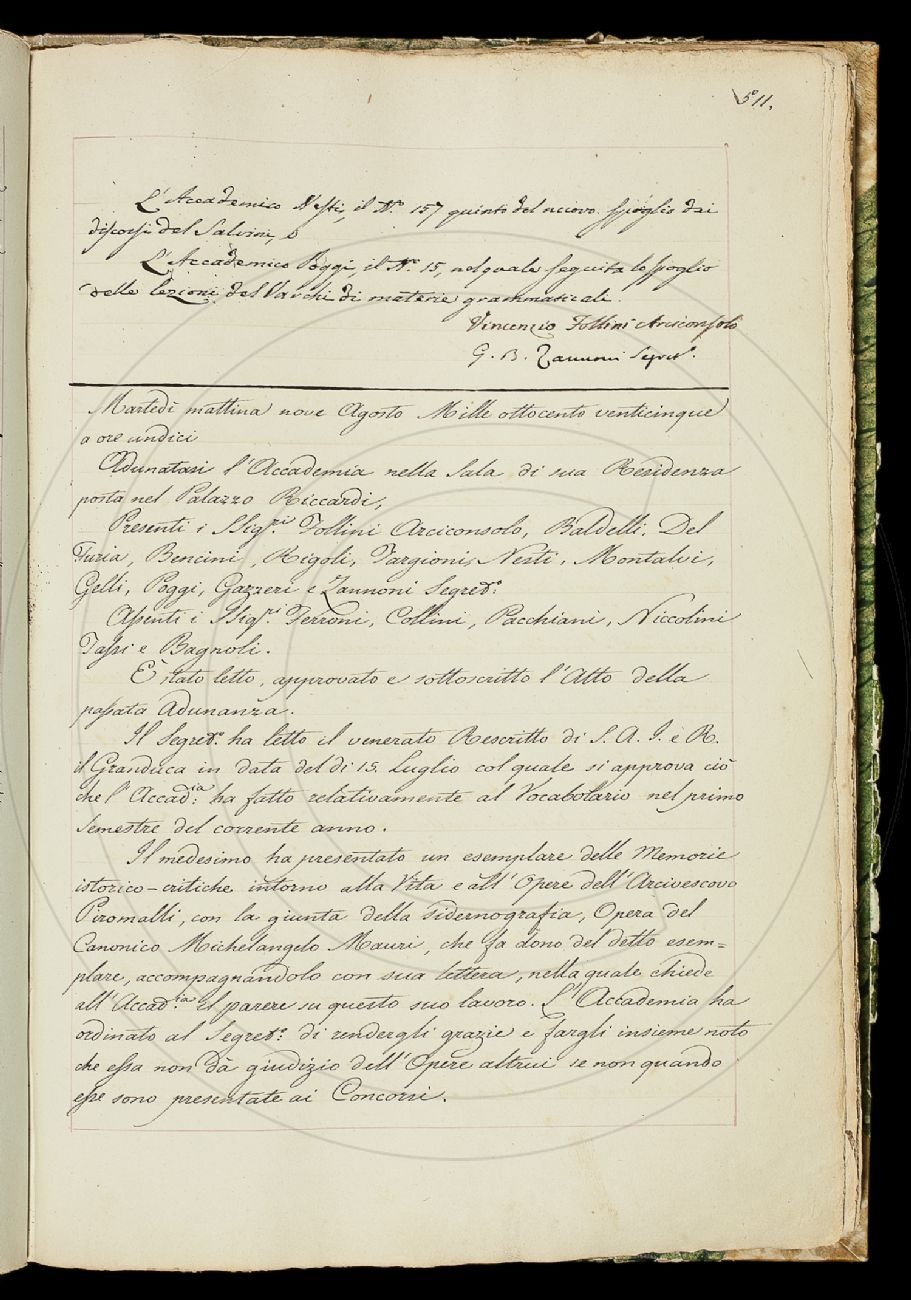 511.
L'Accademico Nesti, il N.o 157 quinto del nuovo spoglio dai
discorsi del Salvini, e
L'Accademico Poggi, il N.o 15, nel quale seguita lo spoglio
delle lezioni del Varchi di materie grammaticali.
Vincenzio Follini Arciconsolo
G. B. Zannoni Segret.o
Martedì mattina nove Agosto Mille ottocento venticinque
a ore undici
Adunatasi l'Accademia nella Sala di sua Residenza
posta nel Palazzo Riccardi,
Presenti i SSig.ri Follini Arciconsolo, Baldelli, Del
Furia, Bencini, Rigoli, Targioni, Nesti, Montalvi,
Gelli, Poggi, Gazzeri e Zannoni Segred.o:
Assenti i SSig.ri Ferroni, Collini, Pacchiani, Niccolini
Tassi e Bagnoli.
È stato letto, approvato e sottoscritto l'Atto della
passata Adunanza.
Il Segred.o ha letto il venerato Rescritto di S. A. I. e R.
il Granduca in data del dì 15. Luglio col quale si approva ciò
che l'Accad.ia: ha fatto relativamente al Vocabolario nel primo
semestre del corrente anno.
Il medesimo ha presentato un esemplare delle Memorie
istorico-critiche intorno alla Vita e all'Opere dell'Arcivescovo
Piromalli, con la giunta della Sidernografia, Opera del
Canonico Michelangelo Mauri, che fa dono del detto esem=
plare, accompagnandolo con sua lettera, nella quale chiede
all'Accad.ia il parere su questo suo lavoro. L'Accademia ha
ordinato al Segred.o: di rendergli grazie e fargli insieme noto
che essa non dà giudizio dell'Opere altrui se non quando
esse sono presentate ai Concorsi.